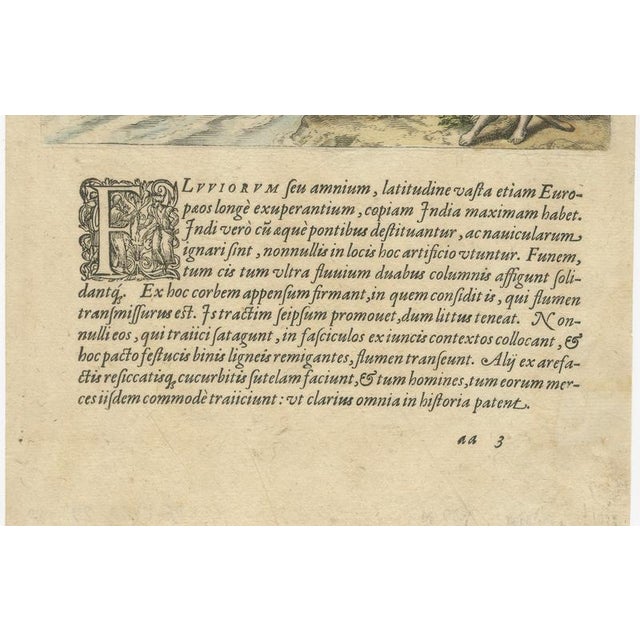 FLVVIORVM ſeu amnium, latitudine vaſta etiam Euro-
pæos longè exuperantium, copiam India maximam habet.
Indi verò cũ æquè pontibus deſtituantur, ac nauicularum
ignari ſint, nonnullis in locis hoc artificio vtuntur. Funem,
tum cis tum vltra fluuium duabus columnis affigunt ſoli-
dantq́;. Ex hoc corbem appenſum firmant, in quem conſidit is, qui flumen
tranſmiſſurus est. Is tractim ſeipſum promouet, dum littus teneat. Non-
nulli eos, qui traiici ſatagunt, in faſciculos ex iuncis contextos collocant, &
hoc pacto feſtucis binis ligneis remigantes, flumen tranſeunt. Alij ex arefa-
ctis reſiccatisq; cucurbitis ſutelam faciunt, & tum homines, tum eorum mer-
ces iiſdem commodè traiiciunt: vt clarius omnia in hiſtoria patent.
aa 3